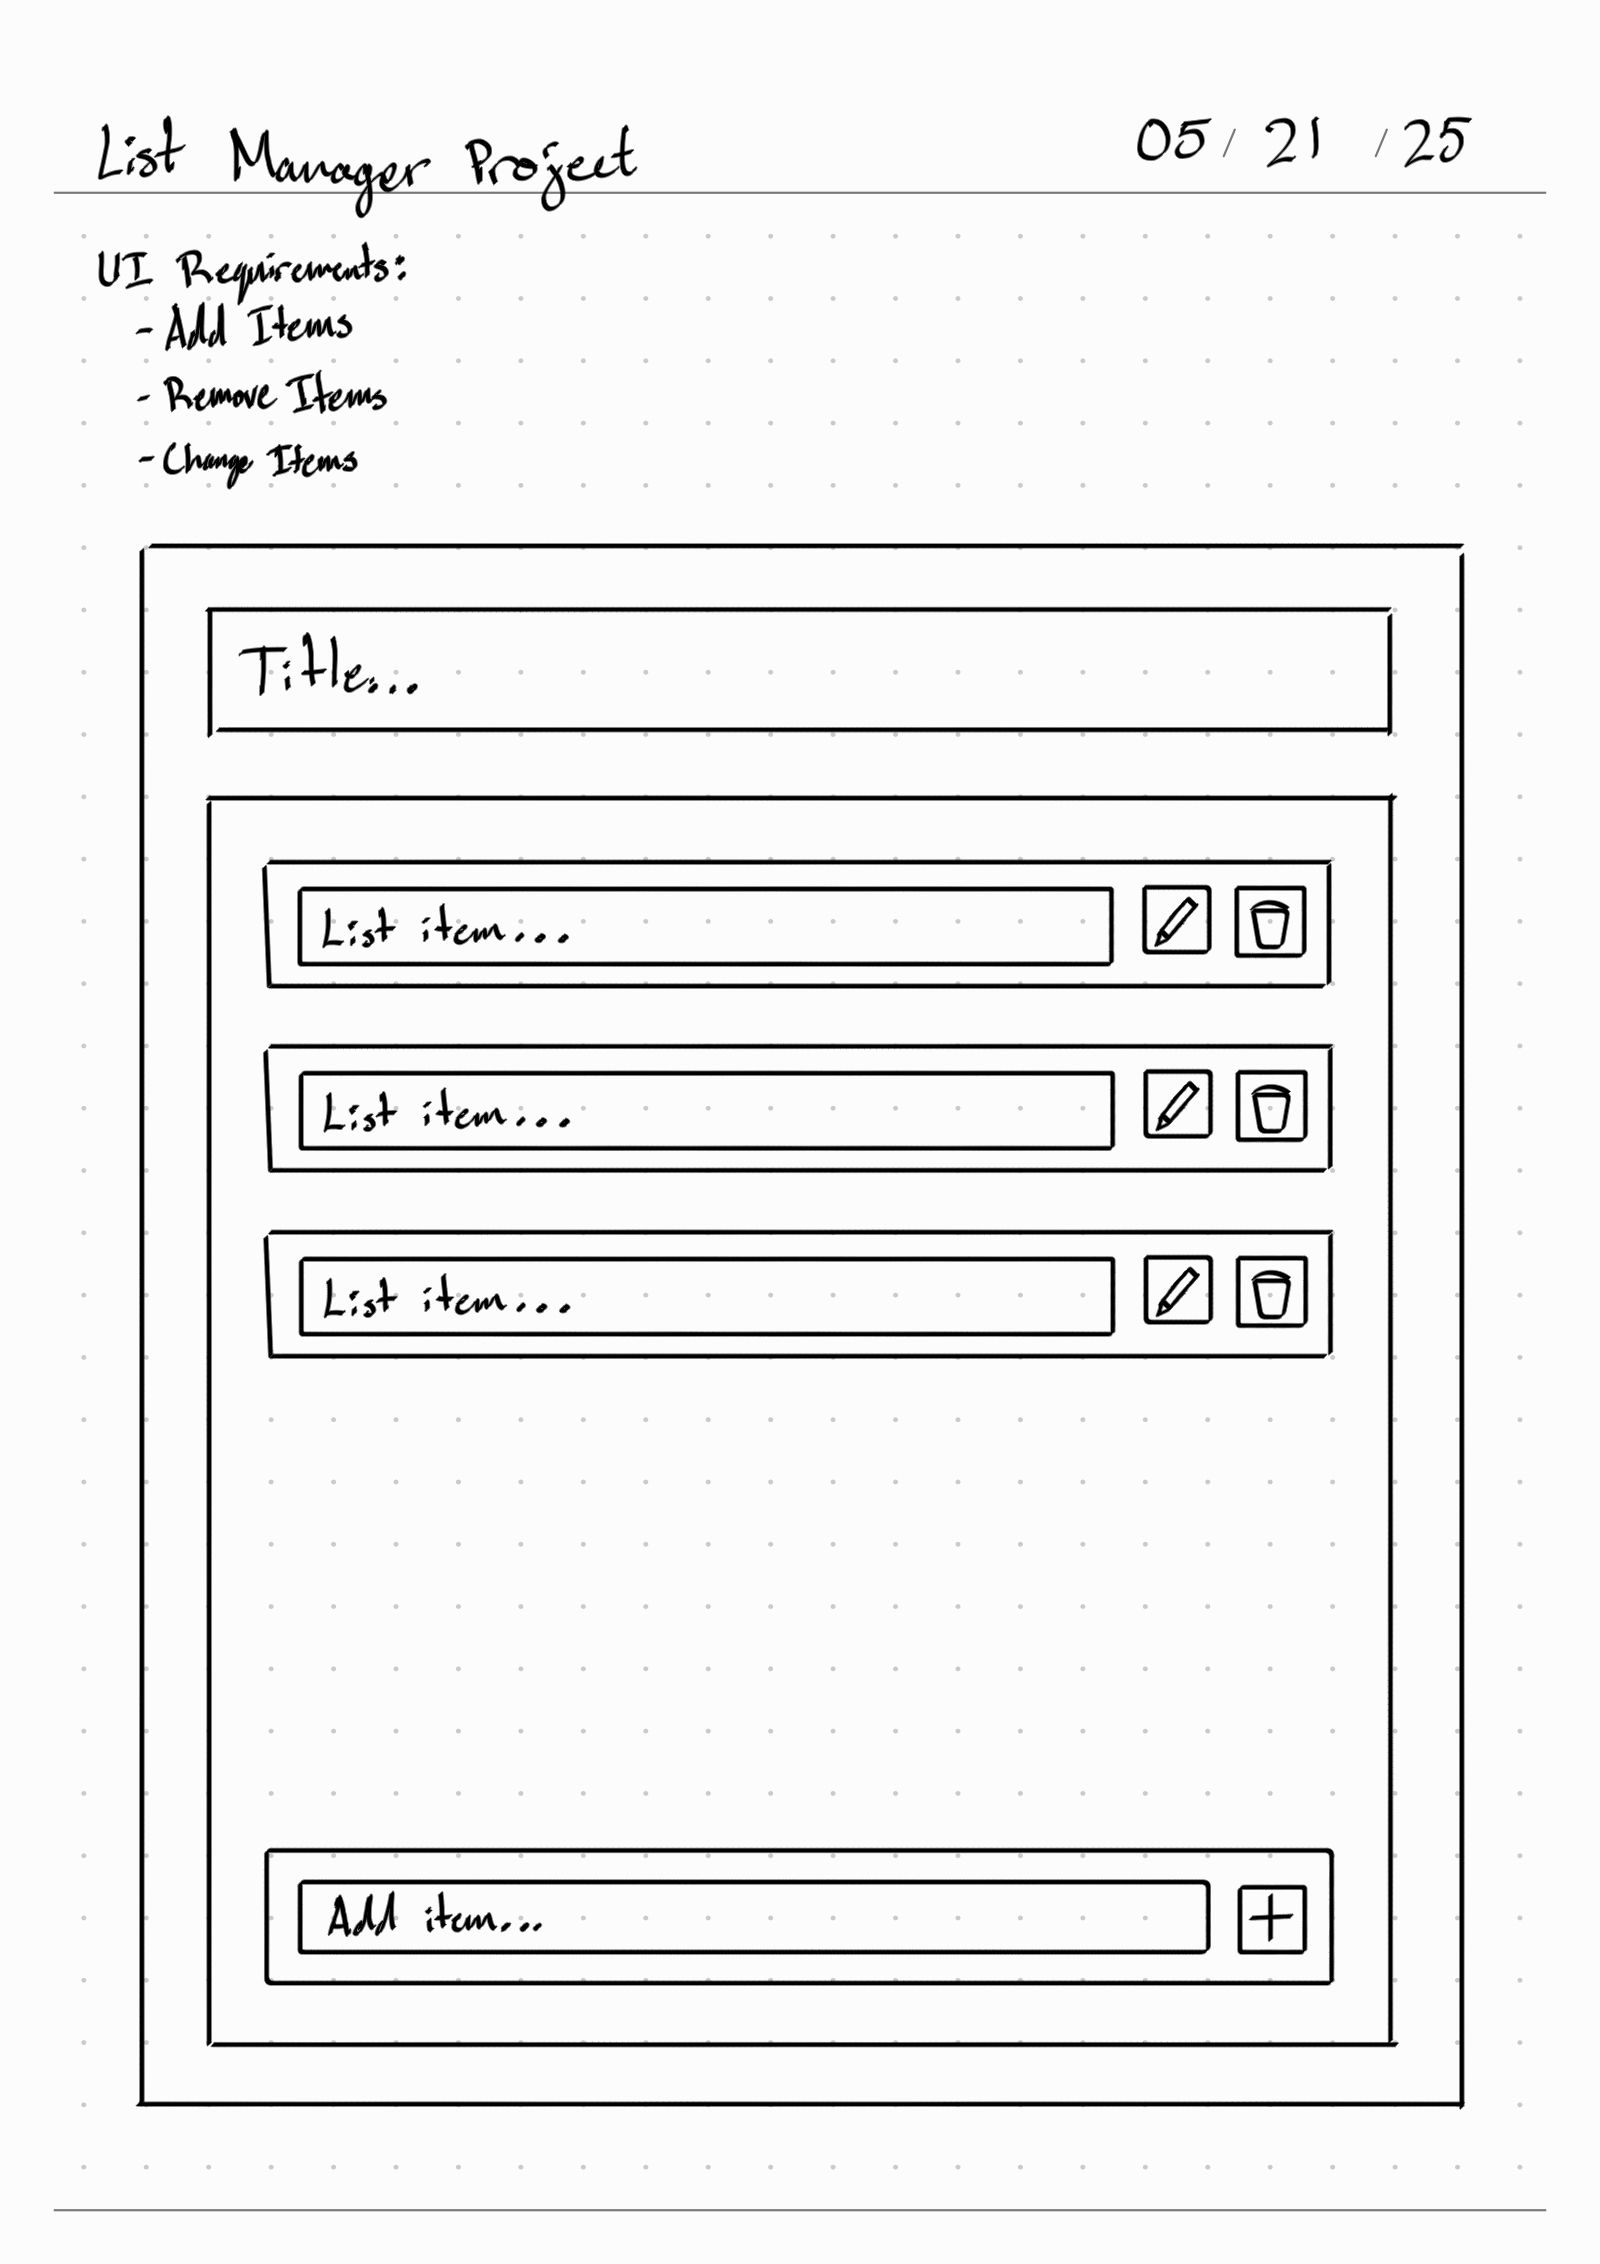 List Manager Project 05/21/25
UI Requirements:
- Add Items
- Remove Items
- Change Items
Title...
List item...
List item...
List item...
Add item...